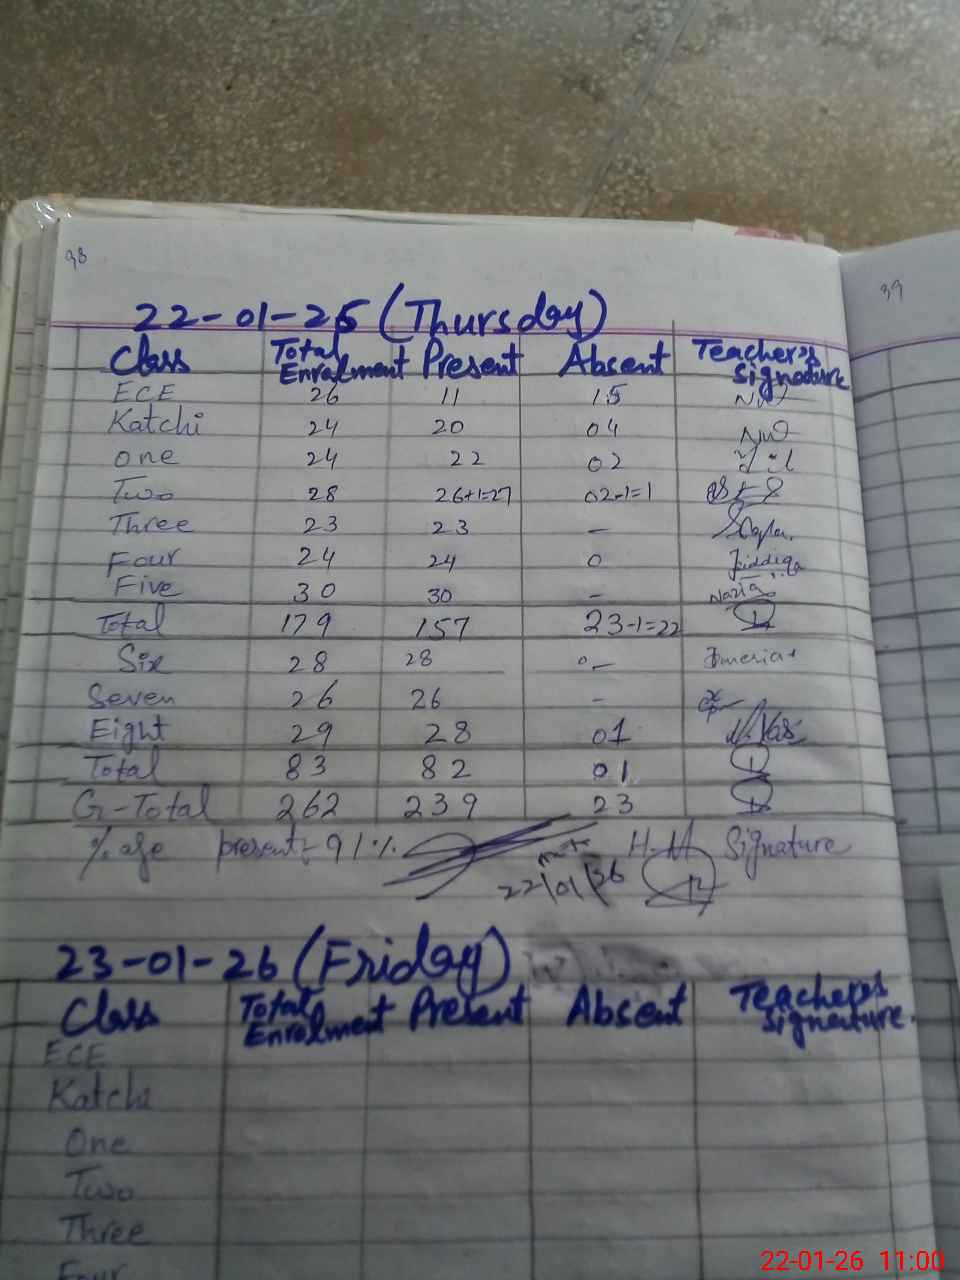 98
39
22-01-26 (Thursday)
Class Total Enrolment Present Absent Teacher's Signature
ECE 26 11 15
Katchi 24 20 04
one 24 22 02
Two 28 26+1=27 02-1=1
Three 23 23 –
Four 24 24 0 Siddiqa
Five 30 30 – Nazia
Total 179 157 23-1=22
Six 28 28 0–
Seven 26 26 –
Eight 29 28 01
Total 83 82 01
G-Total 262 239 23
%age present:- 91% H-M Signature
22/01/26
23-01-26 (Friday)
Class Total Enrolment Present Absent Teacher's Signature.
ECE
Katchi
One
Two
Three
Four
22-01-26 11:00